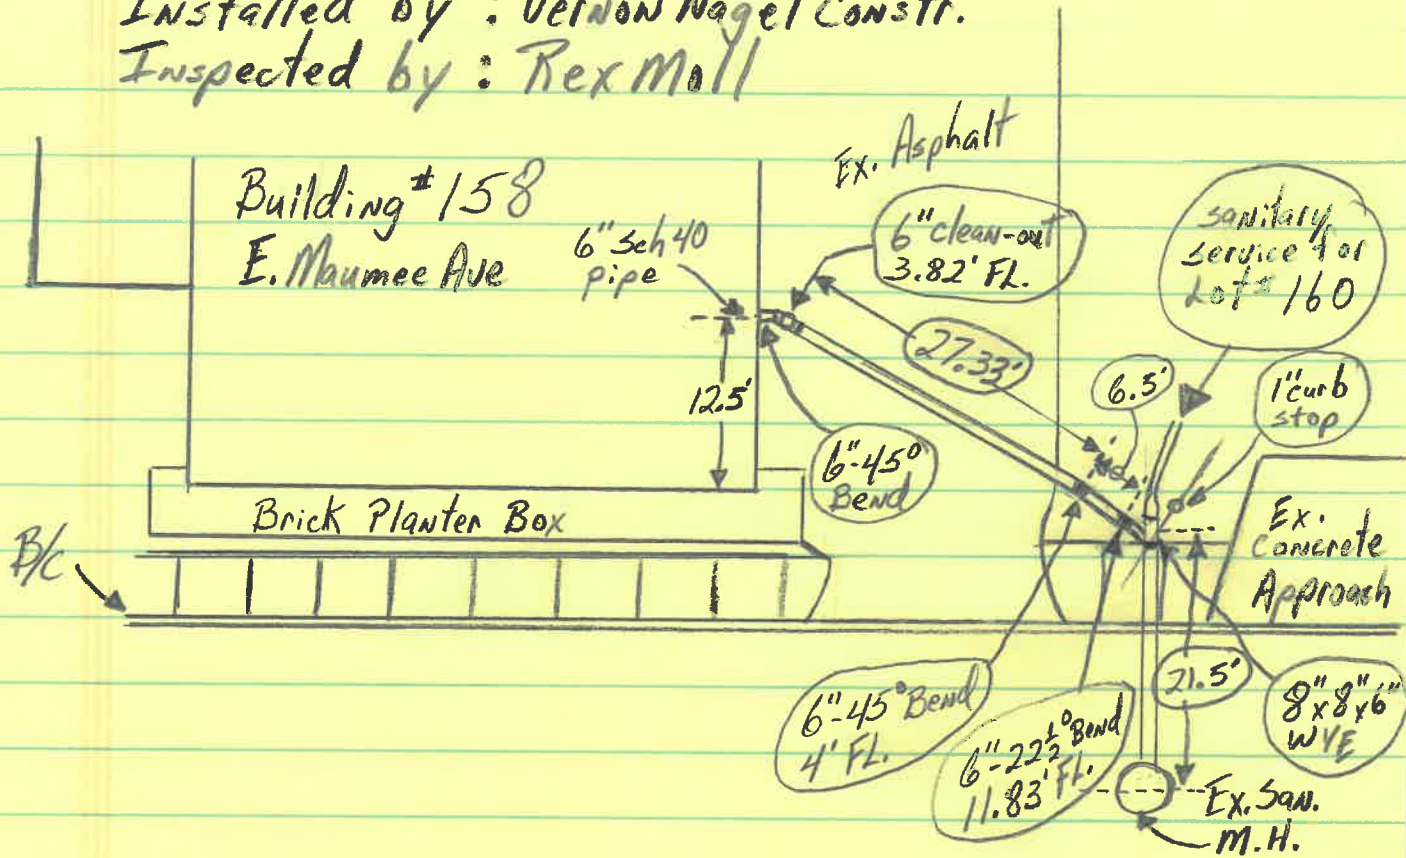 Installed by : Vernon Nagel Constr.
Inspected by : Rex Moll
Ex. Asphalt
Building # 158
E. Maumee Ave
6" sch 40
pipe
6" clean-out
3.82' FL.
sanitary
service for
Lot # 160
27.33'
6.5'
1" curb
stop
12.5'
6"-45°
Bend
Brick Planter Box
Ex.
Concrete
Approach
B/C
6"-45° Bend
4' FL.
6"-22½° Bend
11.83' FL.
21.5'
8"x8"x6"
WYE
Ex. San.
M.H.